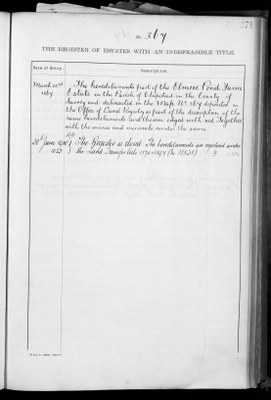 No. 367
THE REGISTER OF ESTATES WITH AN INDEFEASIBLE TITLE.
Date of Entry.
Description.
The hereditaments part of the Elmore Pond Farm
Estate in the Parish of Chipstead in the County of
Surrey and delineated on the Map No. 367 deposited in
the Office of Land Registry as part of the description of the
same hereditaments and thereon edged with red Together
with the mines and minerals under the same
The Register is closed The hereditaments are registered under
the Land Transfer Acts 1875